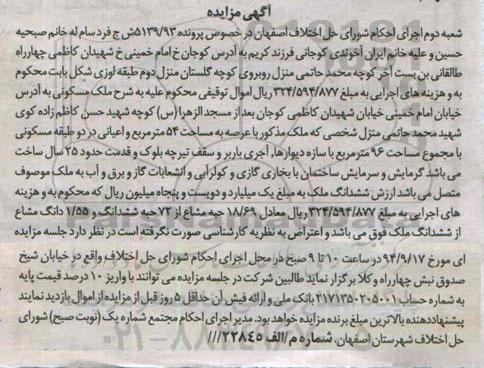 آگهی مزایده
شعبه دوم اجرای احکام شورای حل اختلاف اصفهان در خصوص پرونده ۵۱۳۹/۹۳ش ج فرد سام له خانم صبحیه
حسین و علیه خانم ایران آخوندی کوجانی فرزند کریم به آدرس کوجان خ امام خمینی خ شهیدان کاظمی چهارراه
طالقانی بن بست آخر کوچه محمد حاتمی منزل روبروی کوچه گلستان منزل دوم طبقه اوزی شکل بابت محکوم
به و هزینه های اجرایی به مبلغ ۳۲۴/۵۹۴/۸۷۷ ریال اموال توقیفی محکوم علیه به شرح ملک مسکونی به آدرس
خیابان امام خمینی خیابان شهیدان کاظمی کوجان بعد از مسجد الزهرا (س) کوچه شهید حسن کاظم زاده کوی
شهید محمد حاتمی منزل شخصی که ملک مذکور با عرصه به مساحت ۵۴ مترمربع و اعیانی در دو طبقه مسکونی
با مجموع مساحت ۹۶ مترمربع با سازه دیوارها، آجری باربر و سقف تیرچه بلوک و قدمت حدود ۲۵ سال ساخت
می باشد گرمایش و سرمایش ساختمان با بخاری گازی و کولرآبی و انشعابات گاز و برق و آب به ملک موصوف
متصل می باشد ارزش ششدانگ ملک به مبلغ یک میلیارد و دویست و پنجاه میلیون ریال که محکوم به و هزینه
های اجرایی به مبلغ ۳۲۴/۵۹۴/۸۷۷ ریال معادل ۱۸/۶۹ حبه مشاع از ۷۲ حبه ششدانگ و ۱/۵۵ دانگ مشاع
از ششدانگ ملک فوق می باشد و اعتراض به نظریه کارشناسی صورت نگرفته است در نظر دارد جلسه مزایده
ای مورخ ۹۴/۹/۱۷ در ساعت ۱۰ تا ۹ صبح در محل اجرای احکام شورای حل اختلاف واقع در خیابان شیخ
صدوق نبش چهارراه وکلا برگزار نماید طالبین شرکت در جلسه مزایده می توانند با واریز ۱۰ درصد قیمت پایه
به شماره حساب ۲۱۷۱۳۵۰۲۰۵۰۰۱ بانک ملی و ارائه فیش آن حداقل ۵ روز قبل از مزایده از اموال بازدید نمایند
پیشنهاددهنده بالاترین مبلغ برنده مزایده خواهد بود. مدیر اجرای احکام مجتمع شماره یک (نوبت صبح) شورای
حل اختلاف شهرستان اصفهان. شماره م/الف ۲۲۸۴۵///